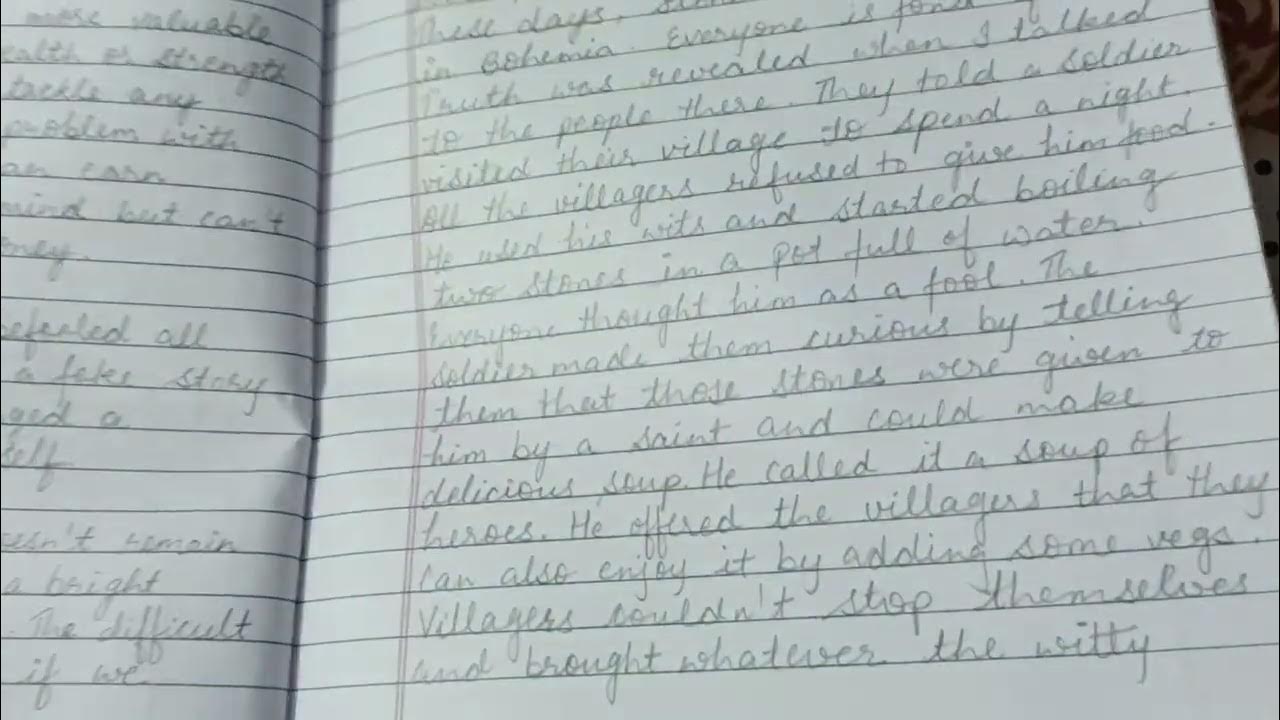 most valuable
ealth or strength
tackle any
problem with
an earn
mind but can't
ney.
efeated all
a fake story
ged a
self
esn't remain
a bright
. The difficult
if we
These days,
in Bohemia. Everyone is fond
Truth was revealed when I talked
to the people there. They told a soldier
visited their village to spend a night.
All the villagers refused to give him food.
He used his wits and started boiling
two stones in a pot full of water.
Everyone thought him as a fool. The
soldier made them curious by telling
them that those stones were given to
him by a saint and could make
delicious soup. He called it a soup of
heroes. He offered the villagers that they
can also enjoy it by adding some vegs.
Villagers couldn't stop themselves
and brought whatever the witty